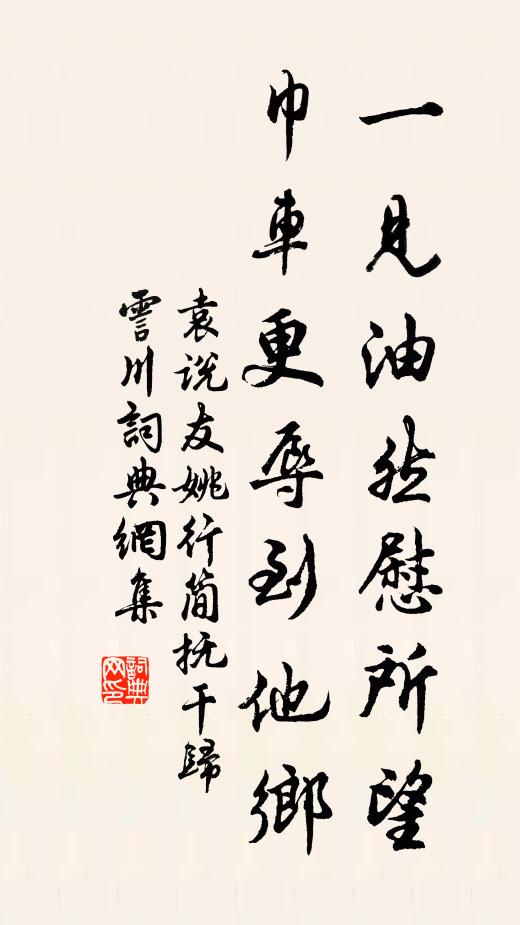 一見油然慰所望
巾車更辱到他鄉
袁说友姚行简抚干歸
雲川詞典網集
詞典網印